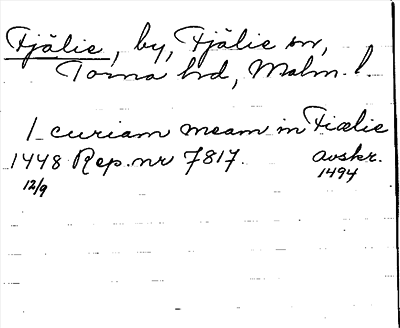 Fjälie, by, Fjälie sn,
Torna hd, Malm. l.
1 curiam meam in Fiælie
1448 Rep. nr 7817. avskr.
12/9 1494